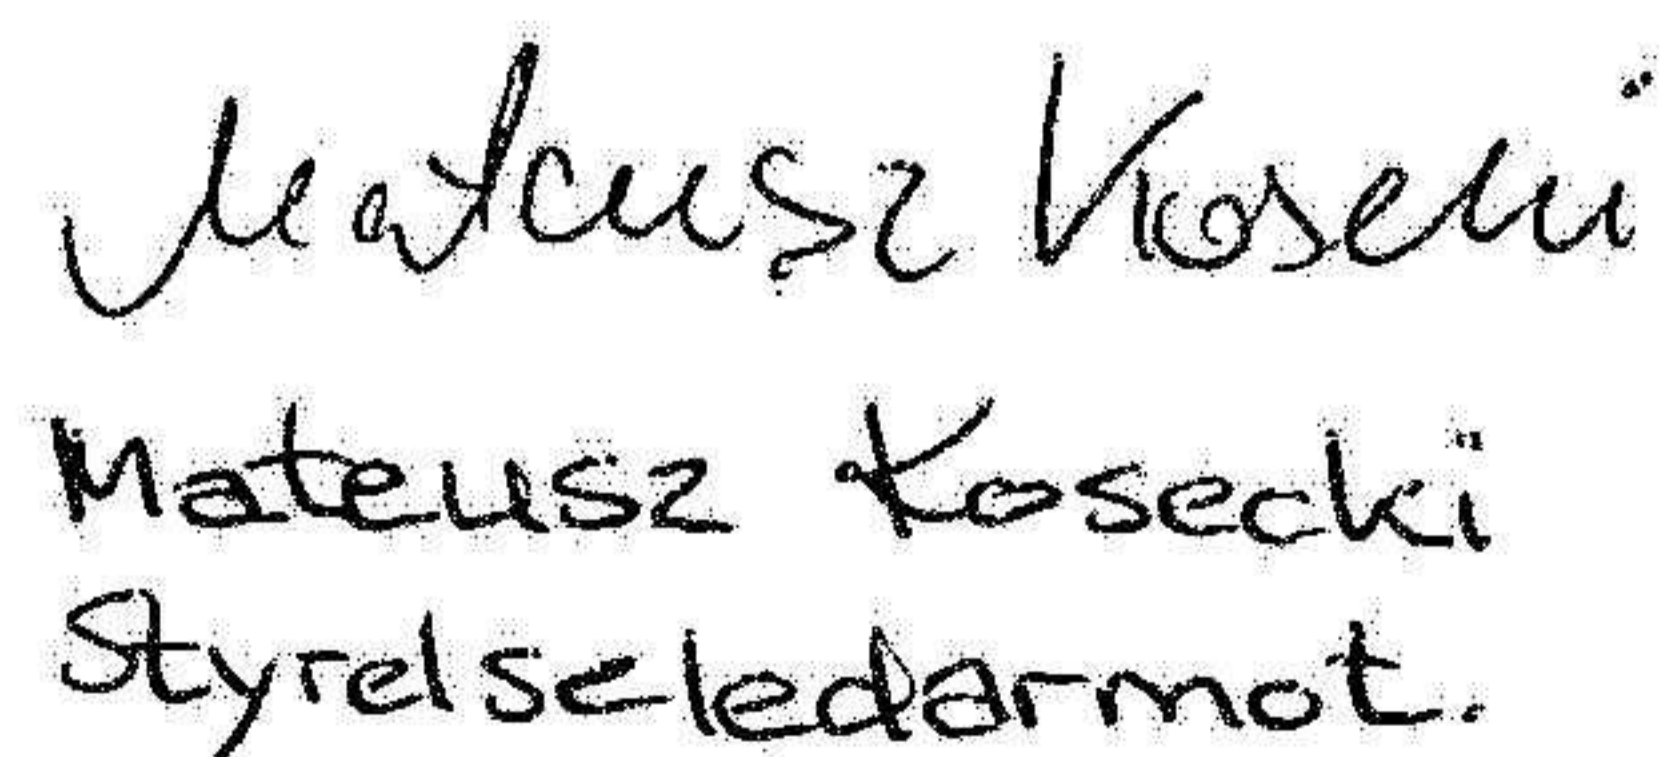 Mateusz Kosecki
Mateusz Kosecki
Styrelseledarmot.